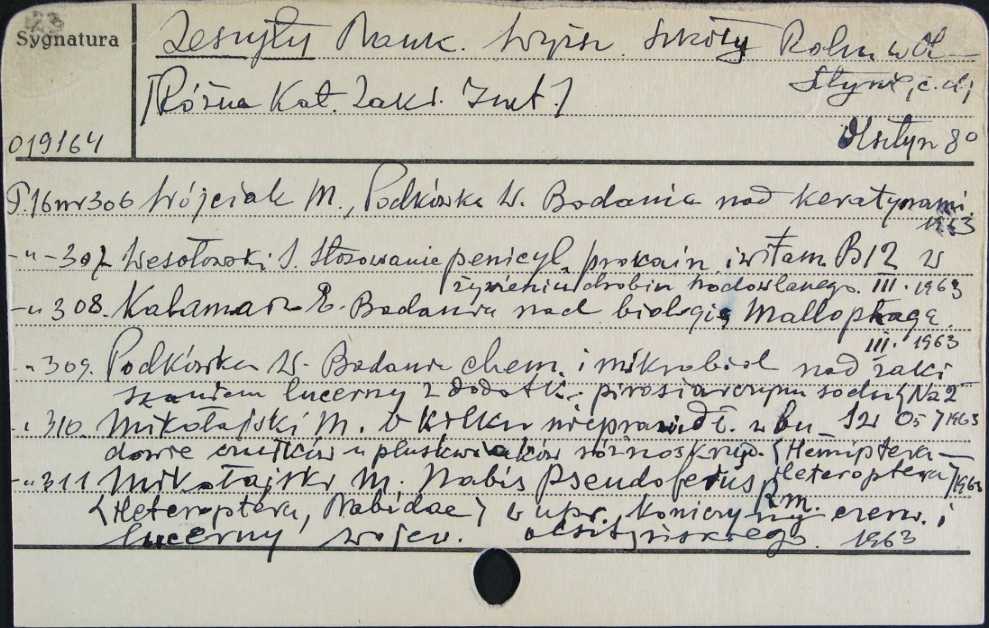 Sygnatura
Zeszyty Nauk. Wyższ. Szkoły Roln. w Ol-
sztynie, c.d.;
[Różne Kat. Zakł. Inst.]
019164
Olsztyn 8°
T.16 nr 306 Wójciak M., Podkówka W. Badania nad keratynami.
1963
-"- 307 Wesołowski S. Stosowanie penicyl. prokain. i witam B12 w
żywieniu drobiu hodowlanego. III. 1963
-" 308. Kalamarz E. Badania nad biologią Mallophaga.
III. 1963
-" 309. Podkówka W. Badania chem. i mikrobiol nad zaki
szaniem lucerny z dodatk. pirosiarczynu sodu (Na2
S2 O5) 1963
-" 310. Mikołajski M. O kilku nieprawidł. w bu-
dowie czułków u pluskwiaków różnoskrzyd. (Hemiptera-
Heteroptera) 1963
-" 311 Mikołajski M. Nabis Pseudoferus Rm.
(Heteroptera, Nabidae) w upr. koniczyny czerw. i
lucerny wojew. olsztyńskiego. 1963